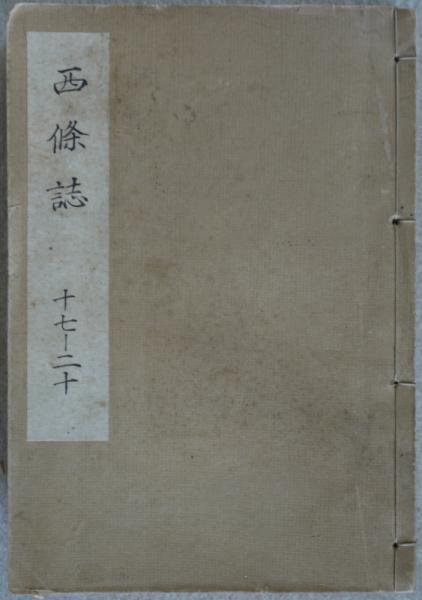 西條誌
十七ー二十